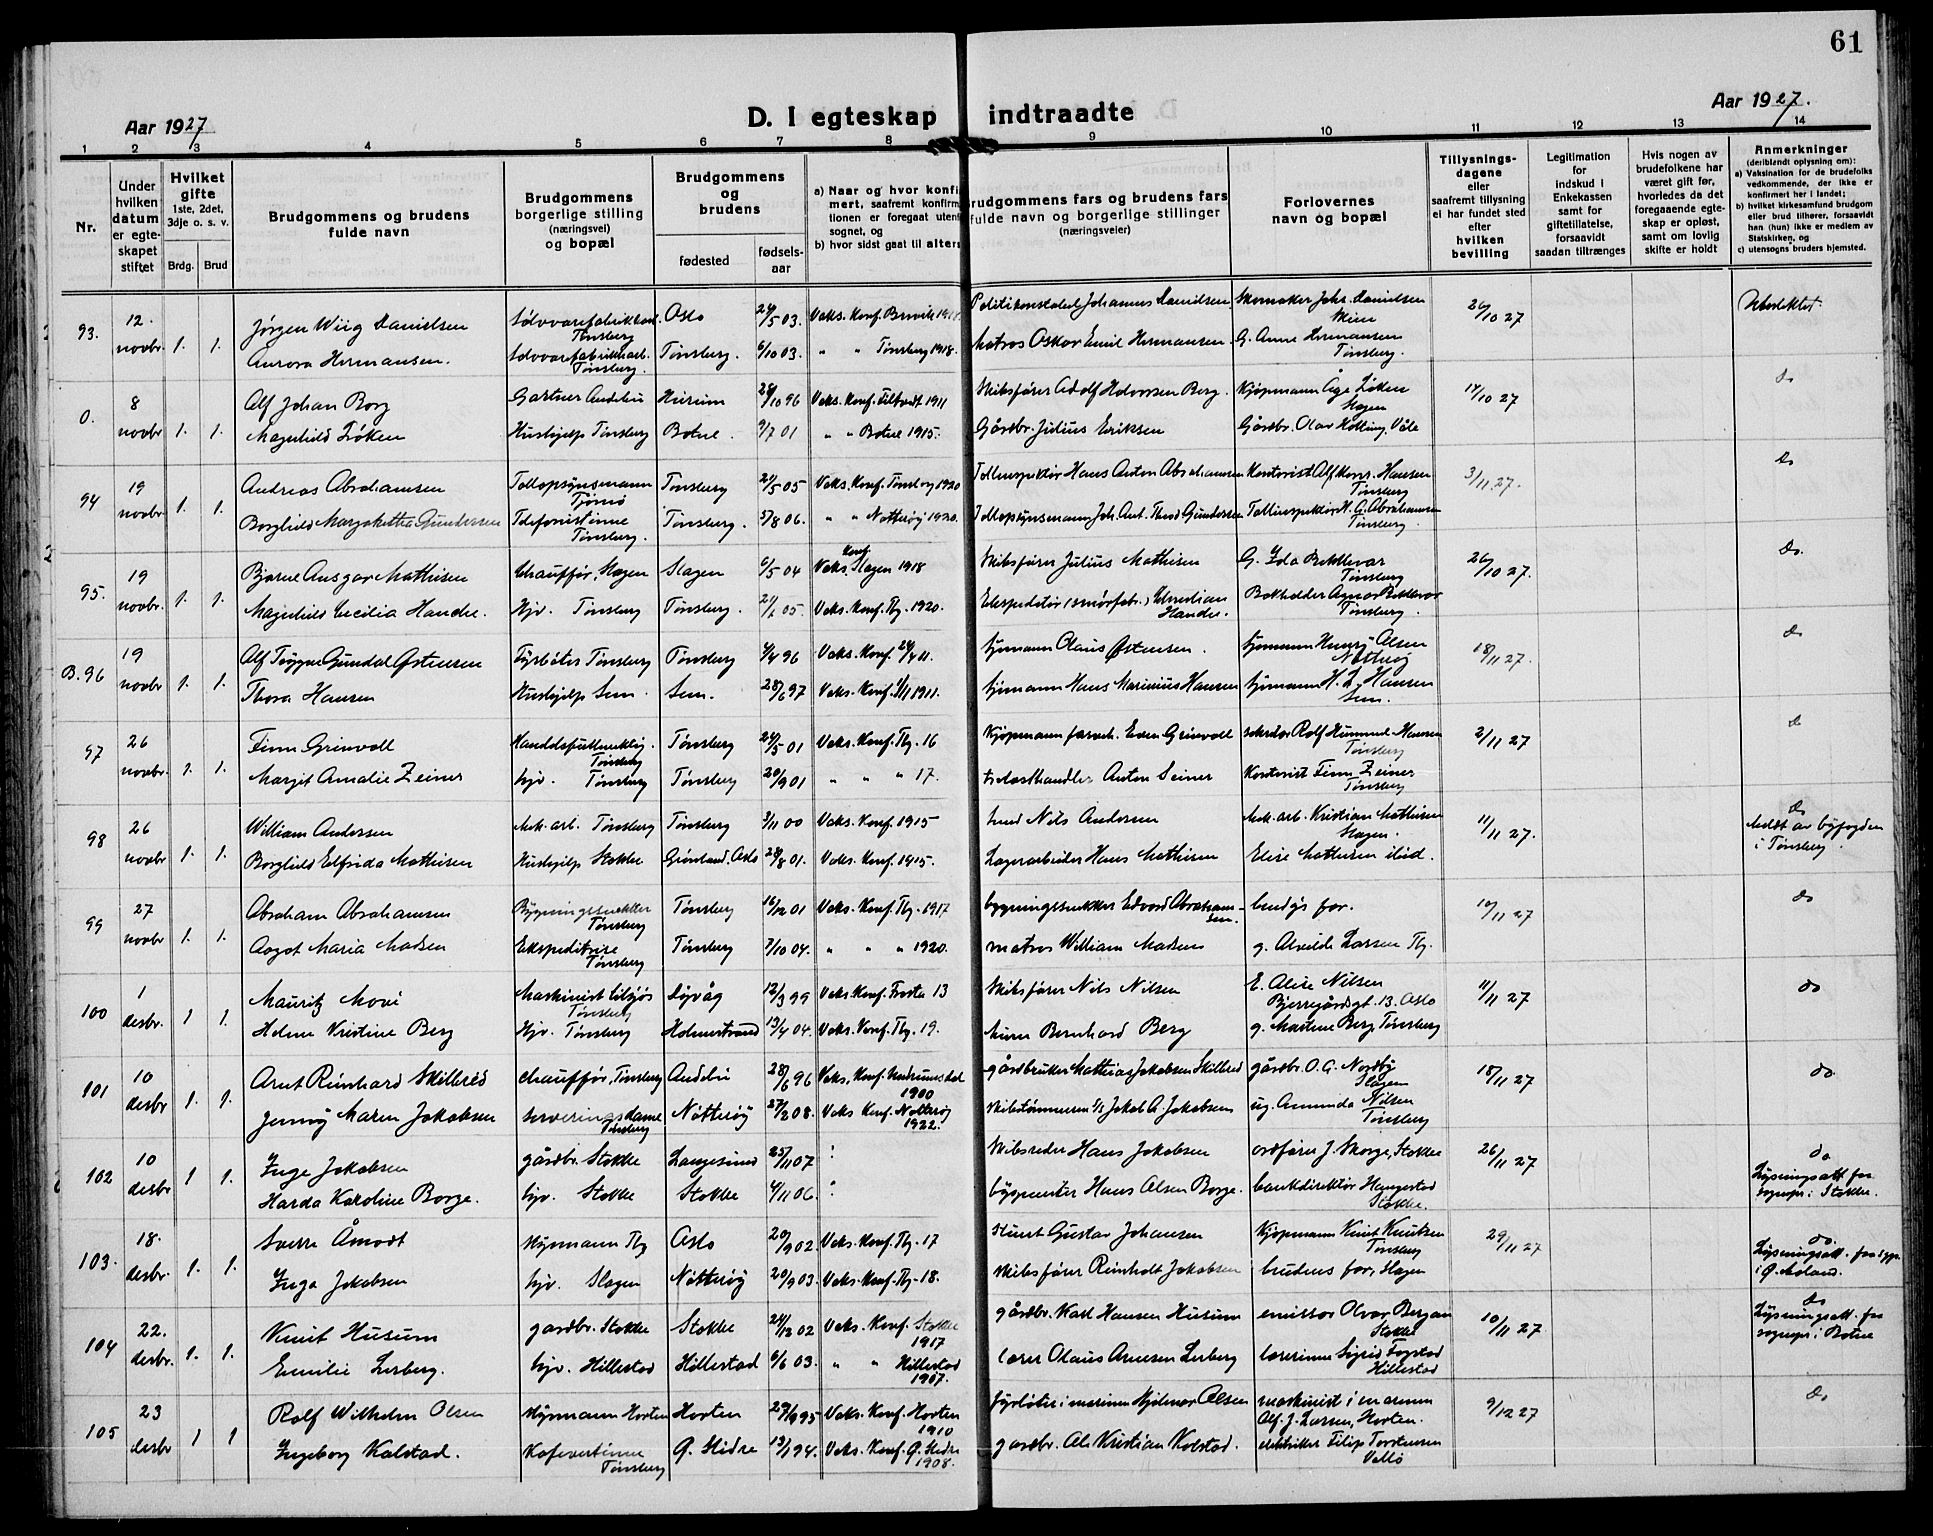 61
Aar 1927
D. I egteskap indtraadte
Aar 1927.
1 2 3 4 5 6 7 8 9 10 11 12 13 14
Nr.
Under hvilken datum er egteskapet stiftet
Hvilket gifte
1ste, 2det, 3dje o. s. v.
Brdg. Brud
Brudgommens og brudens fulde navn
Brudgommens borgerlige stilling (næringsvei) og bopæl
Brudgommens og brudens
fødested
fødsels-aar
a) Naar og hvor konfirmert, saafremt konfirmationen er foregaat utenf sognet, og
b) hvor sidst gaat til alters
Brudgommens fars og brudens fars fulde navn og borgerlige stillinger (næringsveier)
Forlovernes navn og bopæl
Tillysnings-dagene eller saafremt tillysning ei har fundet sted efter hvilken bevilling
Legitimation for indskud i Enkekassen samt for giftetillatelse, forsaavidt saadan tiltrænges
Hvis nogen av brudefolkene har været gift før, hvorledes da det foregaaende egteskap er opløst, samt om lovlig skifte er holdt
Anmerkninger
(deriblandt oplysning om):
a) Vaksination for de brudefolks vedkommende, der ikke er konfirmert her i landet;
b) hvilket kirkesamfund brudgom eller brud tilhører, forsaavidt han (hun) ikke er medlem av Statskirken, og
c) utensogns bruders hjemsted.
93. 12. novbr. 1. 1. Jørgen Wiig Danielsen Sølvvarefabrikkarb. Tønsberg Oslo 24/5 03. Vaks. Konf. Brevik 1918. Politikonstabel Johannes Danielsen Skomaker Johs. Danielsen Skien 26/10 27 Ubeslektet.
Aurora Hermansen. Sølvvarefabrikkarb. Tønsberg. Tønsberg. 6/10 03. " " Tønsberg 1918. Matros Oskar Emil Hermansen. G. Anne Hermansen Tønsberg.
0. 8 novbr 1. 1. Alf Johan Borg Gartner Andebu Hurum 28/10 96 Vaks. Konf. 1911 Skibsfører Adolf Halvorsen Berg. Kjøpmann Åge Løken Slagen 14/10 27 do
Magnhild Løken Hushjelp Tønsberg Botne. 9/7 01 " " Botne 1915. Gårdbr. Julius Eriksen Gårdbr. Olav Kølling, Våle
94 19 novbr. 1. 1. Andreas Abrahamsen Tollopsynsmann Tjømø Tønsberg 21/5 05 Vaks. Konf. Tønsberg 1920 Tollinspektør Hans Anton Abrahamsen Kontorist Alf Konr. Hansen Tønsberg 3/11 27. do
Borghild Margrethe Gundersen Telefonistinne Tønsberg. Tønsberg. 5/8 06. " " Nøtterøy 1920. Tollopsynsmann Joh. Ant. Theod Gundersen Tollinspektør H. A. Abrahamsen Tønsberg.
95. 19 novbr. 1. 1. Bjarne Ansgar Mathisen Chauffør, Slagen Slagen 6/5 04 Vaks. Konf. Slagen 1918 Skibsfører Julius Mathisen G. Ida Bekkevar Tønsberg 26/10 27. do.
Magnhild Cecilia Hande. Hjv. Tønsberg Tønsberg. 21/1 05. Vaks. Konf. Tbg. 1920. Ekspeditør (smørfabr.) Christian Hande. Bokholder Agnar Bekkevar Tønsberg.
B. 96 19 novbr 1. 1. Alf Trygve Gundal Østensen Fyrbøter Tønsberg Tønsberg 4/4 96 Vaks. Konf. 24/4 11. Sjømann Claus Østensen. Sjømann Henry Olsen Nøtterøy 18/11 27. do
Thora Hansen Hushjelp Sem. Sem. 28/6 97 Vaks. Konf. 1/11 1911. Sjømann Hans Marinius Hansen Sjømann H. L. Hansen Sem.
97 26 novbr. 1. 1. Finn Grinvoll Handelsfullmektig. Tønsberg Tønsberg 24/5 01 Vaks. Konf. Tbg. 16 Kjøpmann forsch. Even Grinvoll Rolf Hummel Hansen Tønsberg 2/11 27 do
Margit Amalie Zeiner hjv. Tønsberg Tønsberg 20/9 01 " " " 17. trelasthandler Anton Zeiner Kontorist Finn Zeiner Tønsberg
98 26 novbr. 1. 1. William Andersen Mek. arb. Tønsberg Tønsberg 3/11 00 Vaks. Konf. 1915 Smed Nils Andersen Mek. arb. Kristian Mathisen Slagen. 11/11 27. do
Meldt av byfogden i Tønsberg.
Borghild Elfrida Mathisen Hushjelp Stokke Grønland, Oslo 28/8 01. Vaks. Konf. 1915. Lagerarbeider Hans Mathisen Elise Mathisen ibid.
99 27 novbr 1. 1. Abraham Abrahamsen Bygningssnekker Tønsberg Tønsberg 16/12 01 Vaks. Konf. Tbg. 1917 bygningssnekker Edvard Abrahamsen. brudgs far. 10/11 27 do
Aagot Maria Madsen Ekspeditrise Tønsberg Tønsberg 7/10 04. " " " 1920. matros William Madsen g. Alvilde Larsen Tbg.
100 1 desbr. 1 1. Mauritz Movi Maskinist tilsjøs Tønsberg 12/3 99 Vaks. Konf. Frosta 13 Skibsfører Nils Nilsen E. Alise Nilsen Bjerregårdsgt. 13. Oslo 11/11 27 do
Helene Kristine Berg Hjv. Tønsberg Holmestrand 13/4 04. Vaks. Konf. Tbg. 19. Murer Bernhard Berg g. Martine Berg Tønsberg
101 10 desbr 1. 1. Arnt Reinhard Skillerød chauffør, Tønsberg Andebu 28/6 96 Vaks. Konf. Undrumsdal 1900 gårdbruker Mathias Jakobsen Skillerød gårdbr. O. G. Nordby Slagen 18/11 27 do
Jenny Maren Jakobsen serveringsdame Tønsberg Nøtterøy 27/2 08. Vaks Konf. Nøtterøy 1922. Skibstømmermann Jakob A. Jakobsen ug. Amunda Nilsen Tønsberg
102 10 desbr 1 1. Inge Jakobsen gårdbr. Stokke Langesund 25/11 07 Skibsreder Hans Jakobsen ordfører J. Skorge, Stokke 26/11 27 do
Lysningsatt. fra sognepr. i Stokke.
Harda Karoline Borge. hjv. Stokke Stokke 4/11 06. byggmester Hans Olsen Borge. bankdirektør Haugestad Stokke.
103. 18. desbr. 1. 1. Sverre Åmodt Hyrmann Tbg Oslo 20/9 02 Vaks. Konf. Tbg. 17 Stuert Gustav Johansen Kjøpmann Knut Knutsen Tønsberg 29/11 27 do.
Lysningsatt. fra sgpr. i Ø. Moland.
Inga Jakobsen hjv. Slagen Nøtterøy 20/9 03. Vaks. Konf. Tbg. 18. Skibsfører Reinholdt Jakobsen brudens far, Slagen
104 22. desbr. 1. 1. Knut Husum gardbr. Stokke Stokke 24/12 02 Vaks. Konf. Stokke 1917 gårdbr. Karl Hansen Husum emissær Olvar Bergan Stokke 10/11 27 do
Lysningsatt. fra sognepr. i Botne
Emilie Lerberg. hjv. Hillestad Hillestad 6/6 03. " " Hillestad 1907. lærer Olaus Arnesen Lerberg lærerinne Sigrid Fogstad Hillestad
105 23 desbr 1 1 Rolf Wilhelm Olsen Hyrmann Horten Horten 29/9 95 Vaks. Konf. Horten 1910 fyrbøter i marinen Hjalmar Olsen maskinist i marinen Alf. J. Larsen, Horten. 9/12 27 do
Ingeborg Kolstad. Kafevertinne Tønsberg Ø. Slidre 13/1 94. Vaks. Konf. Ø. Slidre 1908. gardbr. Ole Kristian Kolstad. elektriker Filip Torstensen Vallø